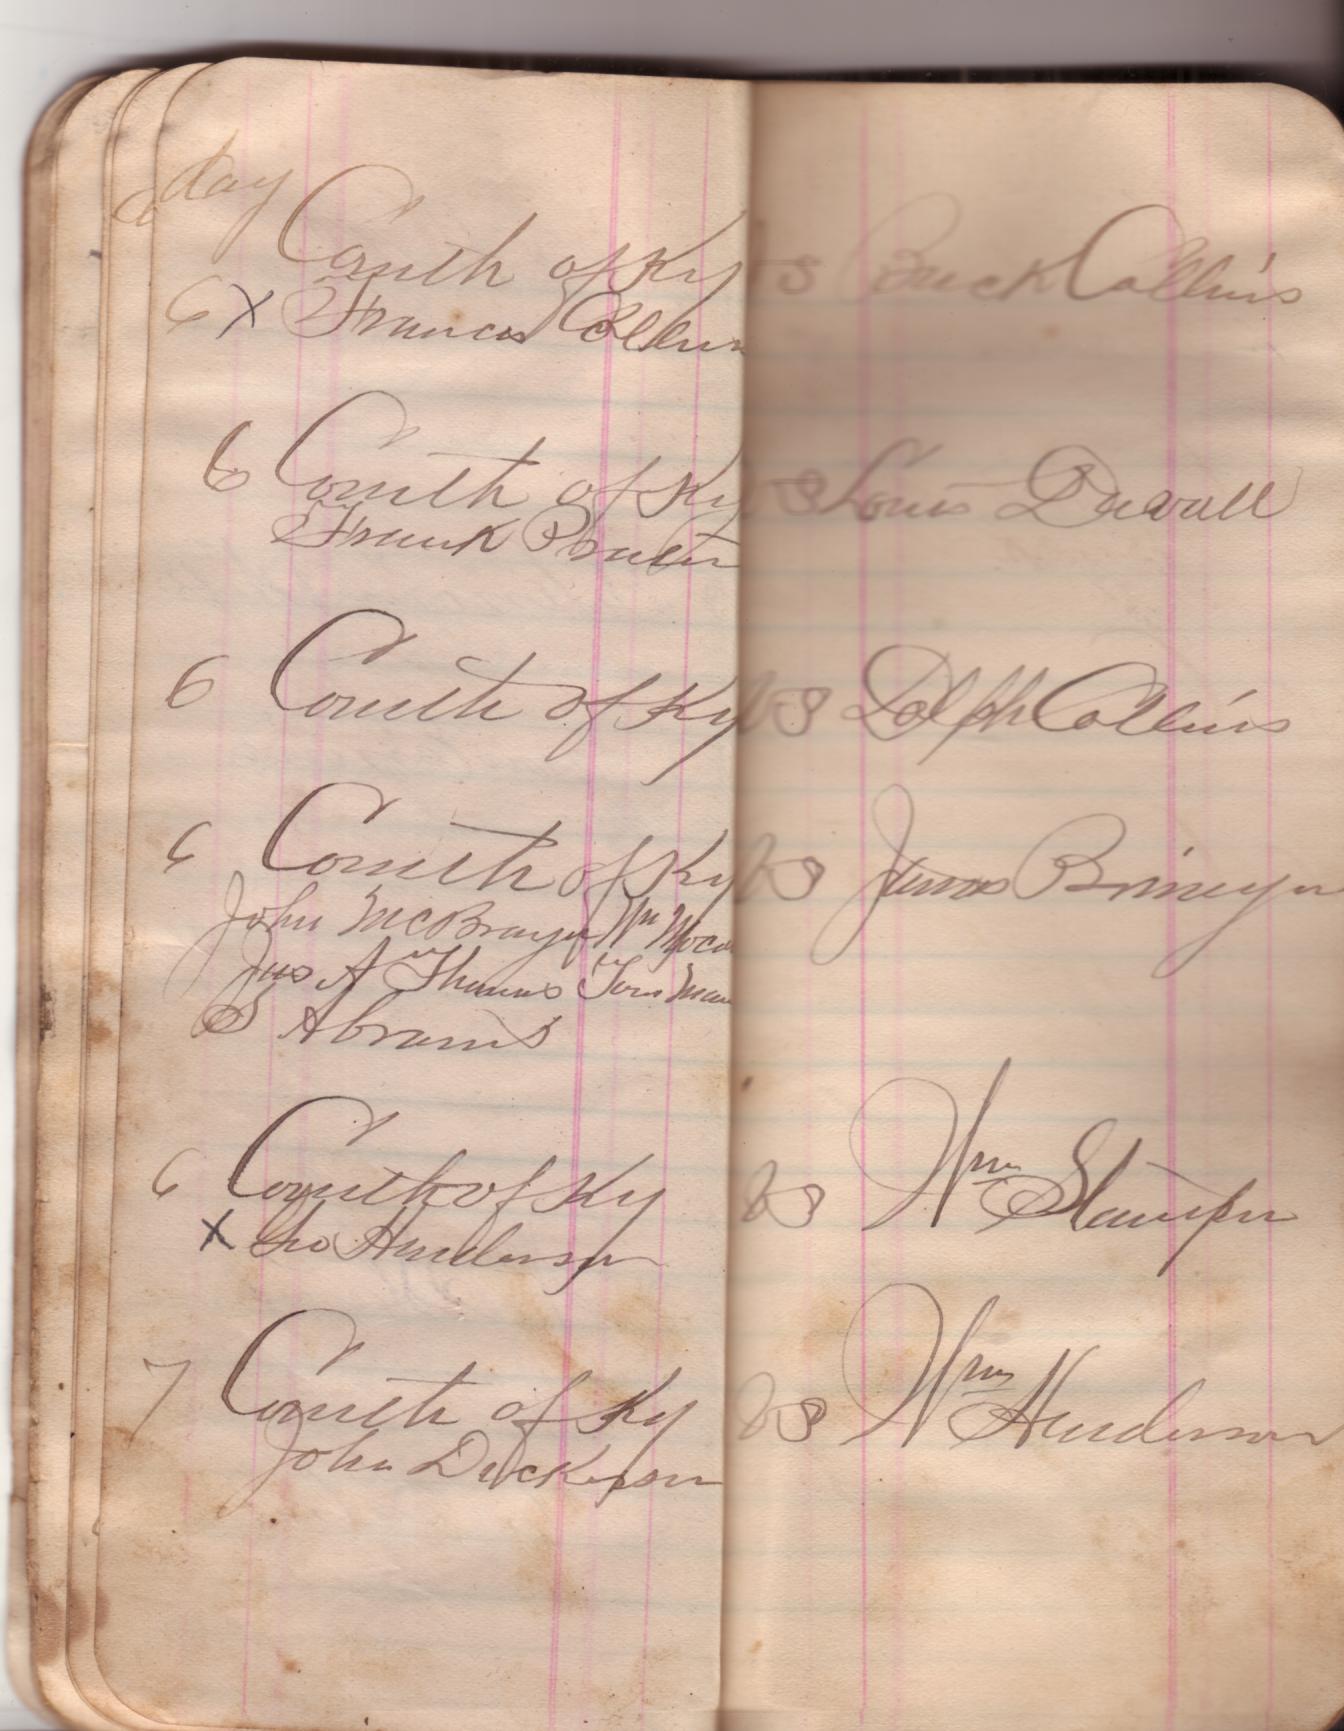 day
Comth of Ky vs Buck Collins
6 X Francis Collins
6 Comth of Ky vs Louis Duvall
Frank Prater
6 Comth of Ky vs Dolph Collins
6 Comth of Ky vs James Brimeyer
John McBrayer Wm
Jas A Thomas Tom
S Abrams
6 Comth of Ky vs Wm Stamper
X Geo Henderson
7 Comth of Ky vs Wm Henderson
John Dickerson